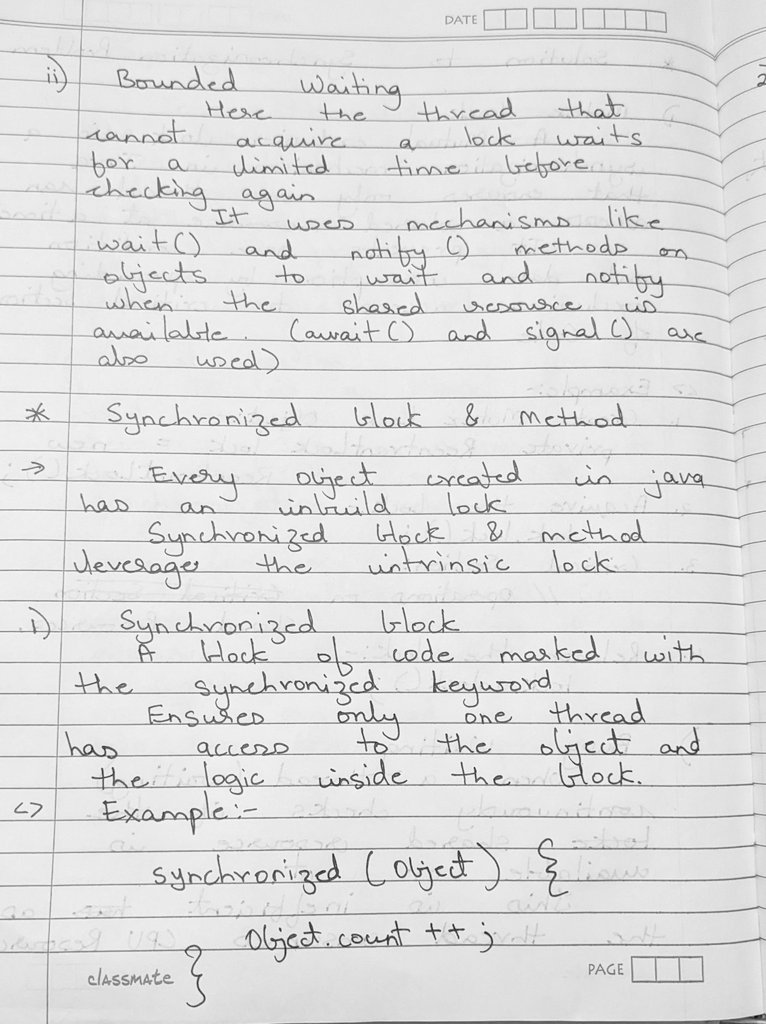 DATE
ii) Bounded Waiting
Here the thread that
cannot acquire a lock waits
for a limited time before
checking again
It uses mechanisms like
wait() and notify() methods on
objects to wait and notify
when the shared resource is
available. (await() and signal() are
also used)
* Synchronized block & Method
→ Every object created in java
has an inbuild lock
Synchronized block & method
leverages the intrinsic lock
i) Synchronized block
A block of code marked with
the synchronized keyword
Ensures only one thread
has access to the object and
the logic inside the block.
<> Example:-
synchronized (Object) {
Object.count ++ ;
}
classmate
PAGE